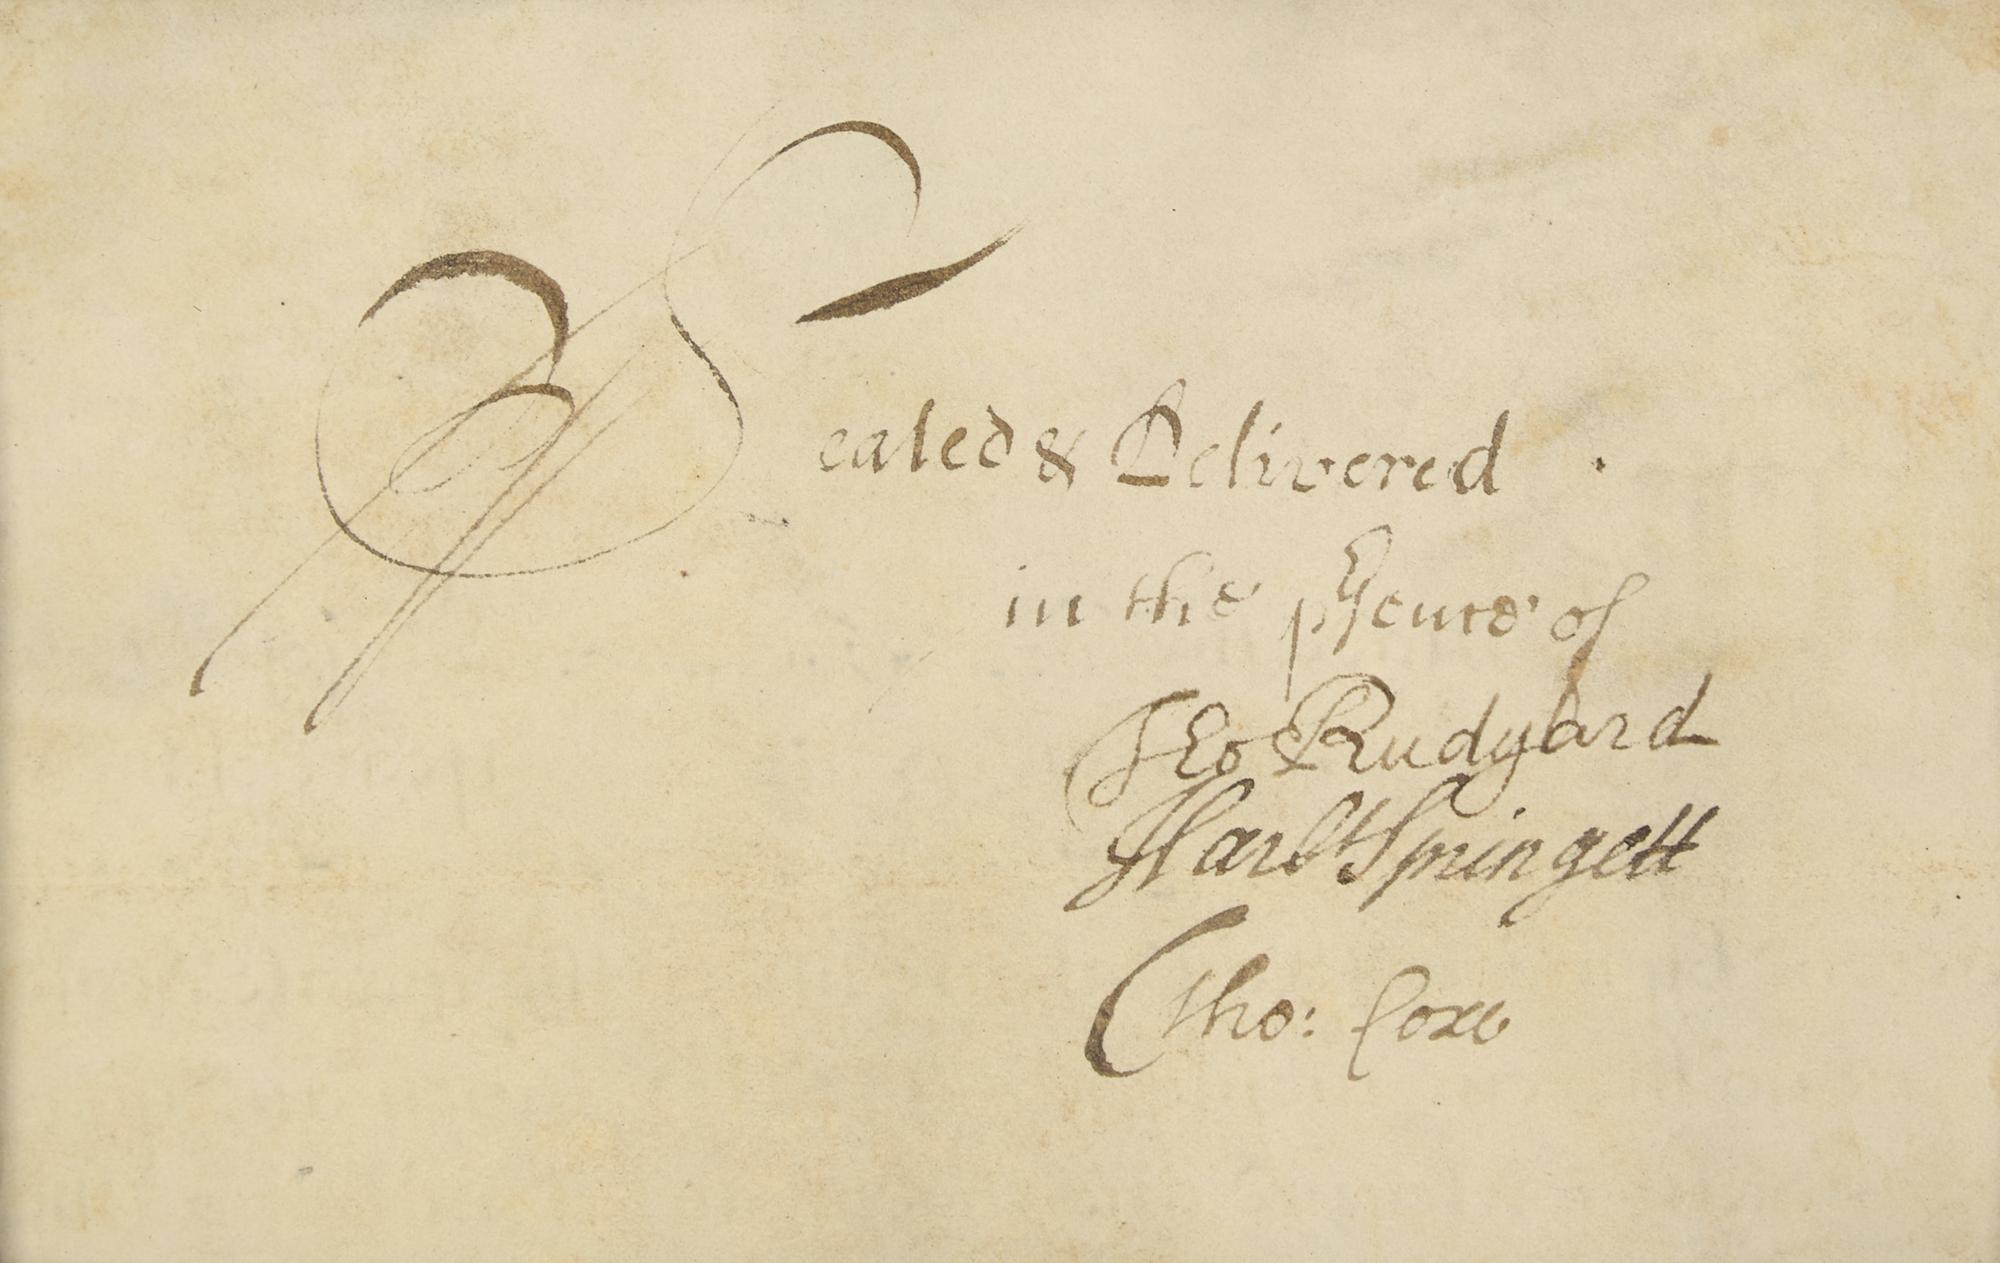 Sealed & Delivered
in the pʳsence of
Tho Rudyard
Harbt Springett
Tho: Coxe